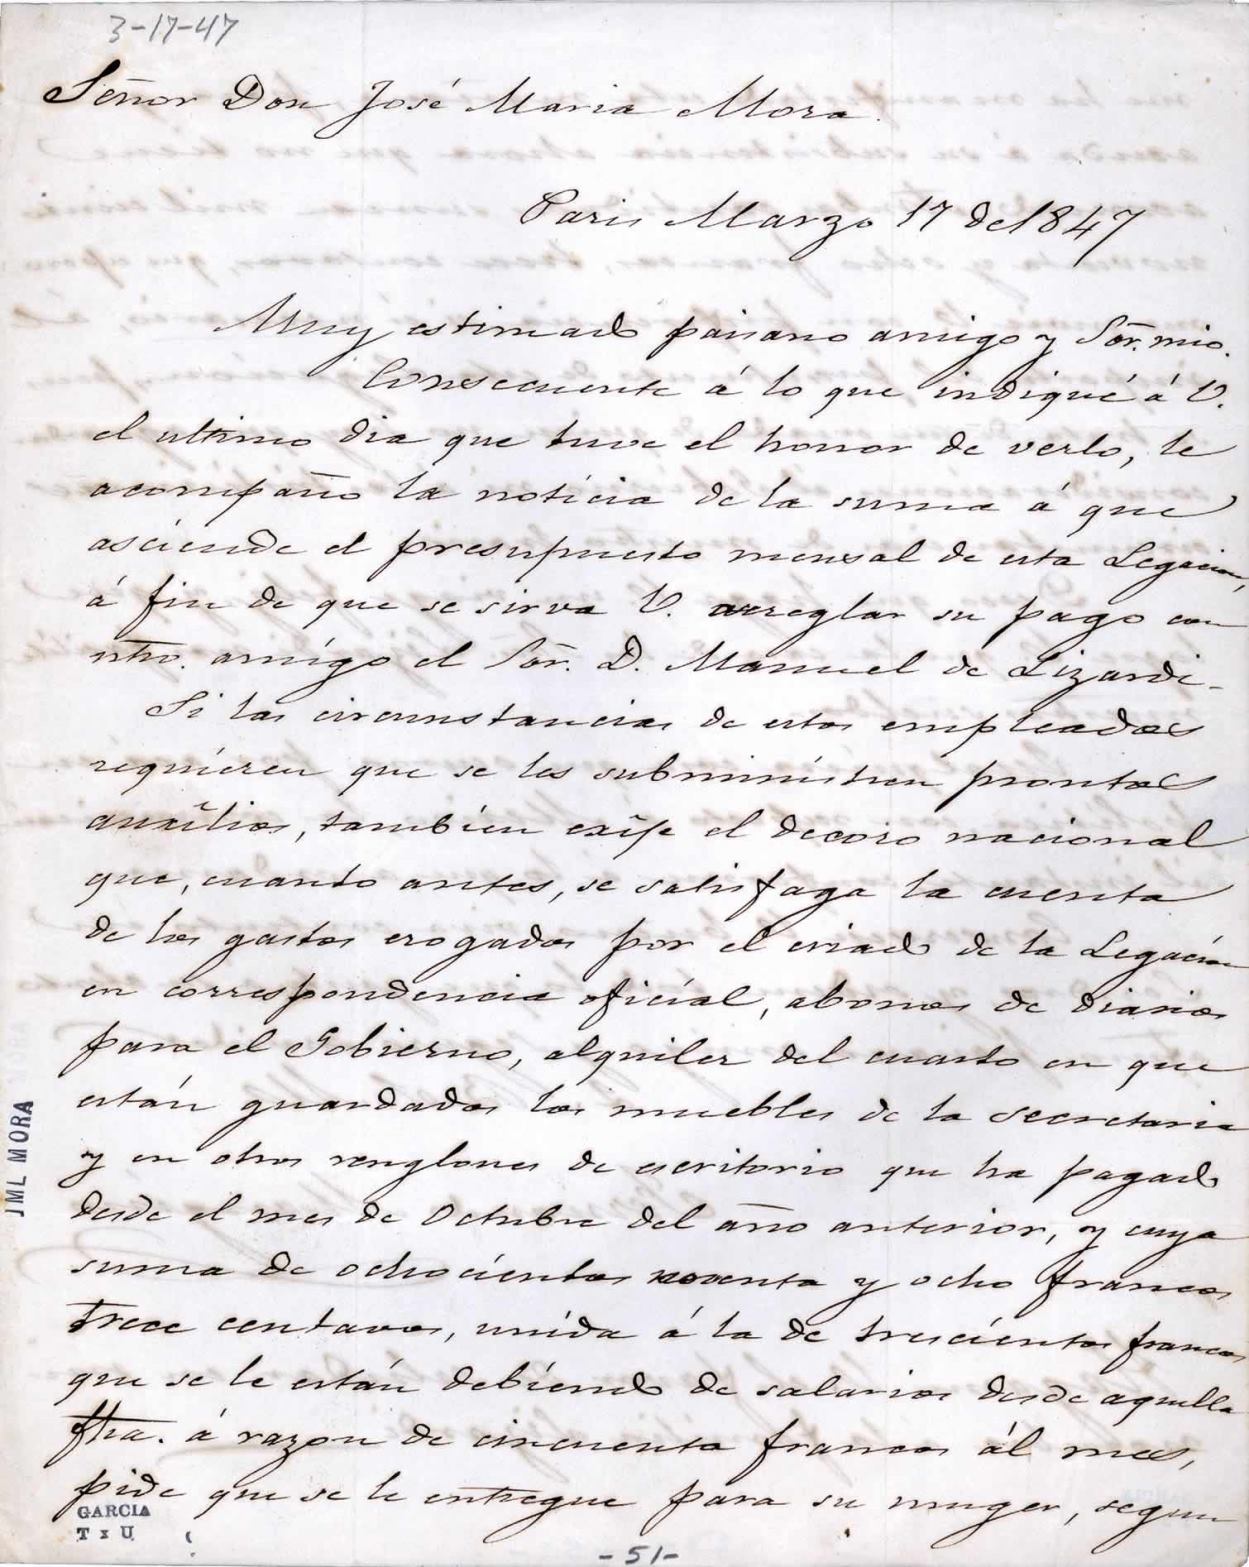 3-17-47
Señor Don José Maria Mora.
Paris Marzo 17 de 1847
Muy estimado paisano amigo y Sõr. mio.
Consecuente á lo que indiqué á V.
el ultimo dia que tuve el honor de verlo, le
acompaño la noticia de la suma á que
asciende el presupuesto mensal de esta Legacion,
á fin de que se sirva V. arreglar su pago con
ntro. amigo el Sõr. D. Manuel de Lizardi-
Si las circunstancias de estos empleados
requieren que se les subministren prontos
auxilios, tambien exije el decoro nacional
que, cuanto antes, se satisfaga la cuenta
de los gastos erogados por el criado de la Legacion
en correspondencia oficial, abonos de diarios
para el Gobierno, alquiler del cuarto en que
están guardados los muebles de la secretaria
y en otros renglones de escritorio que ha pagado
desde el mes de Octubre del año anterior, y cuya
suma de ochocientos noventa y ocho francos
trece centavos, unida á la de trescientos francos
que se le están debiendo de salarios desde aquella
fha. á razon de cincuenta francos ál mes,
pide que se le entregue para su muger, segun
JML MORA
GARCIA
T x U
-51-